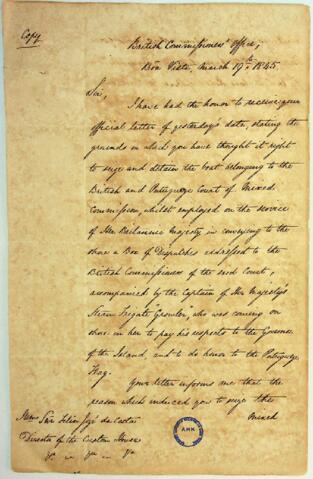 Copy
British Commissioners' Office,
Bôa Vista, March 17th 1845.
Sir,
I have had the honor to receive your
official letter of yesterday's date, stating the
grounds on which you have thought it right
to seize and detain the boat belonging to the
British and Portugueze Court of Mixed
Commission, whilst employed on the service
of Her Britannic Majesty in conveying to the
shore a Box of Despatches addressed to the
British Commissioners of the said Court,
accompanied by the Captain of Her Majesty's
Steam Frigate "Growler, who was coming on
shore in her to pay his respects to the Governor
of the Island, and to do honor to the Portugueze
Flag.
Your letter informs me that the
reason which induced you to seize the
mixed
Senr José da Costa
Director of the Custom House
AHN